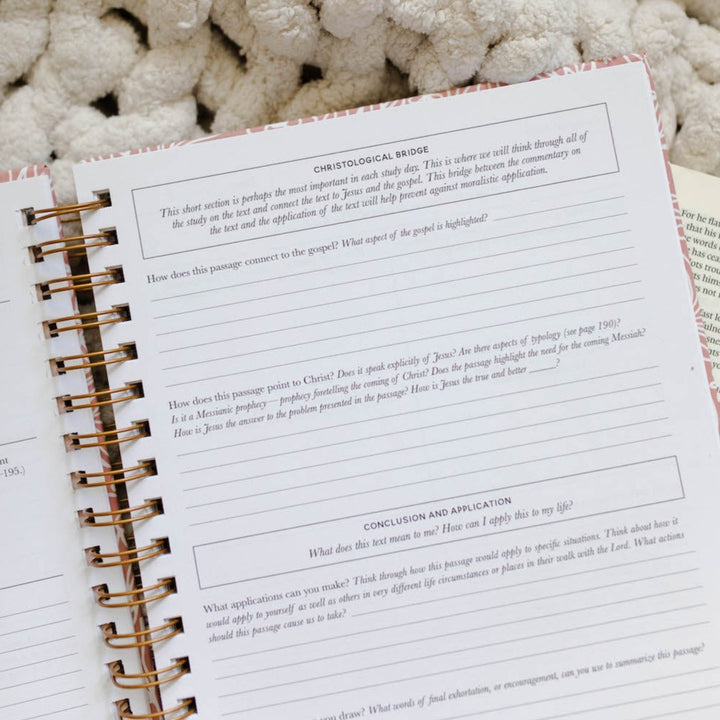 CHRISTOLOGICAL BRIDGE
This short section is perhaps the most important in each study day. This is where we will think through all of
the study on the text and connect the text to Jesus and the gospel. This bridge between the commentary on
the text and the application of the text will help prevent against moralistic application.
How does this passage connect to the gospel? What aspect of the gospel is highlighted?
How does this passage point to Christ? Does it speak explicitly of Jesus? Are there aspects of typology (see page 190)?
Is it a Messianic prophecy—prophecy foretelling the coming of Christ? Does the passage highlight the need for the coming Messiah?
How is Jesus the answer to the problem presented in the passage? How is Jesus the true and better ____?
CONCLUSION AND APPLICATION
What does this text mean to me? How can I apply this to my life?
What applications can you make? Think through how this passage would apply to specific situations. Think about how it
would apply to yourself as well as others in very different life circumstances or places in their walk with the Lord. What actions
should this passage cause us to take?
you draw? What words of final exhortation, or encouragement, can you use to summarize this passage?
-195.)
For he
that his
words
has
him
not